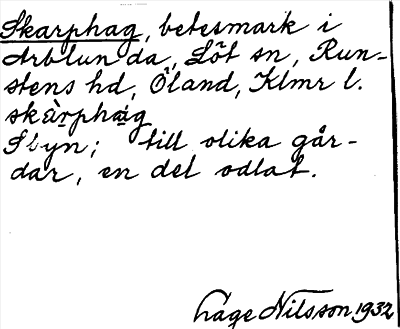 Skarphag, betesmark i
Arblunda, Löt sn, Run-
stens hd, Öland, Klmr l.
skàrphág
I byn; till olika går-
dar, en del odlat.
Lage Nilsson 1932